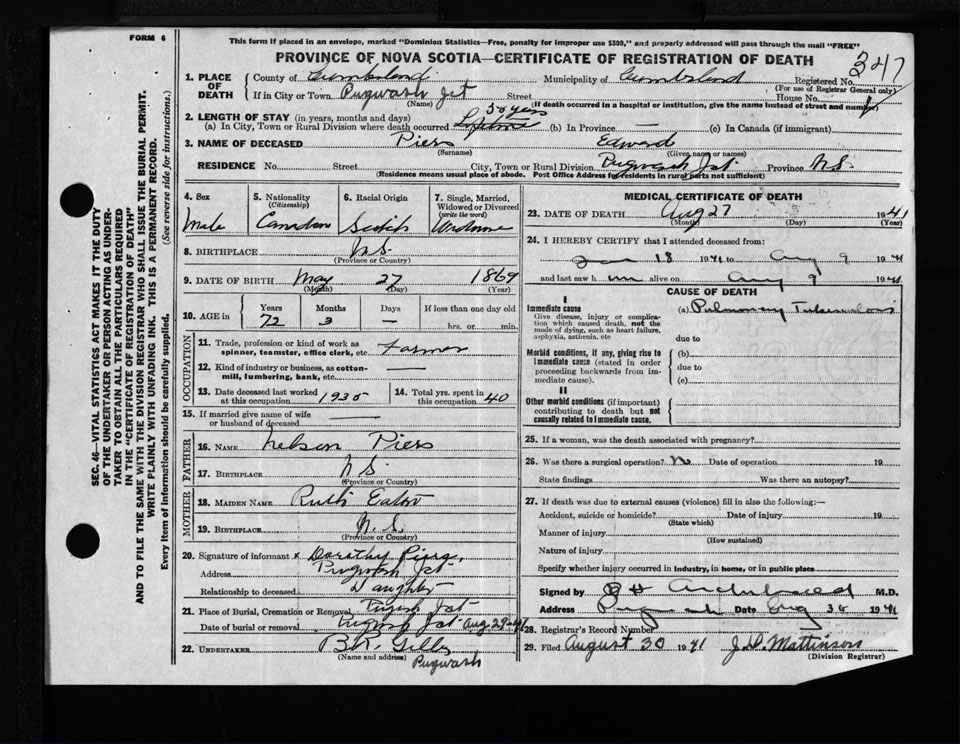 FORM 6
This form if placed in an envelope, marked "Dominion Statistics—Free, penalty for improper use $300," and properly addressed will pass through the mail "FREE"
PROVINCE OF NOVA SCOTIA—CERTIFICATE OF REGISTRATION OF DEATH
347
1. PLACE OF DEATH
County of Cumberland Municipality of Cumberland Registered No.
(For use of Registrar General only)
If in City or Town Pugwash Jct Street House No.
(Name) (If death occurred in a hospital or institution, give the name instead of street and number)
2. LENGTH OF STAY (in years, months and days) 50 years
(a) In City, Town or Rural Division where death occurred Lifetime (b) In Province — (c) In Canada (if immigrant)
3. NAME OF DECEASED Piers Edward
(Surname) (Given name or names)
RESIDENCE No. Street City, Town or Rural Division Pugwash Jct. Province N.S.
(Residence means usual place of abode. Post Office Address for residents in rural parts not sufficient)
4. Sex
Male
5. Nationality (Citizenship)
Canadian
6. Racial Origin
Scotch
7. Single, Married, Widowed or Divorced (write the word)
8. BIRTHPLACE N.S.
(Province or Country)
9. DATE OF BIRTH May 27 1869
(Month) (Day) (Year)
10. AGE in Years Months Days If less than one day old
72 3 — hrs. or min.
OCCUPATION
11. Trade, profession or kind of work as spinner, teamster, office clerk, etc. Farmer
12. Kind of industry or business, as cotton-mill, lumbering, bank, etc. —
13. Date deceased last worked at this occupation 1935
14. Total yrs. spent in this occupation 40
15. If married give name of wife or husband of deceased —
FATHER
16. NAME Nelson Piers
17. BIRTHPLACE N S.
(Province or Country)
MOTHER
18. MAIDEN NAME Ruth Eaton
19. BIRTHPLACE N.S.
(Province or Country)
20. Signature of informant x Dorathy Piers
Address Pugwash Jct
Relationship to deceased Daughter
21. Place of Burial, Cremation or Removal Pugwash Jct
Date of burial or removal Pugwash Jct Aug 29-41
22. UNDERTAKER Gills
(Name and address) Pugwash
MEDICAL CERTIFICATE OF DEATH
23. DATE OF DEATH Aug 27 1941
(Month) (Day) (Year)
24. I HEREBY CERTIFY that I attended deceased from:
Jan 18 1941 to Aug 9 1941
and last saw him alive on Aug 9 1941
CAUSE OF DEATH
I
Immediate cause
Give disease, injury or complication which caused death, not the mode of dying, such as heart failure, asphyxia, asthenia, etc
(a) Pulmonary Tuberculosis
due to
Morbid conditions, if any, giving rise to immediate cause (stated in order proceeding backwards from immediate cause).
(b)
due to
(c)
II
Other morbid conditions (if important) contributing to death but not causally related to immediate cause.
25. If a woman, was the death associated with pregnancy?
26. Was there a surgical operation? No Date of operation 19
State findings Was there an autopsy?
27. If death was due to external causes (violence) fill in also the following:—
Accident, suicide or homicide? Date of injury 19
(State which)
Manner of injury
(How sustained)
Nature of injury
Specify whether injury occurred in industry, in home, or in public place
Signed by Archibald M.D.
Address Pugwash Date Aug 30 1941
28. Registrar's Record Number
29. Filed August 30 1941 J.D. Mattinson
(Division Registrar)
SEC. 46—VITAL STATISTICS ACT MAKES IT THE DUTY
OF THE UNDERTAKER OR PERSON ACTING AS UNDER-
TAKER TO OBTAIN ALL THE PARTICULARS REQUIRED
IN THE "CERTIFICATE OF REGISTRATION OF DEATH"
AND TO FILE THE SAME WITH THE DIVISION REGISTRAR WHO SHALL ISSUE THE BURIAL PERMIT.
WRITE PLAINLY WITH UNFADING INK. THIS IS A PERMANENT RECORD.
Every item of information should be carefully supplied. (See reverse side for instructions.)